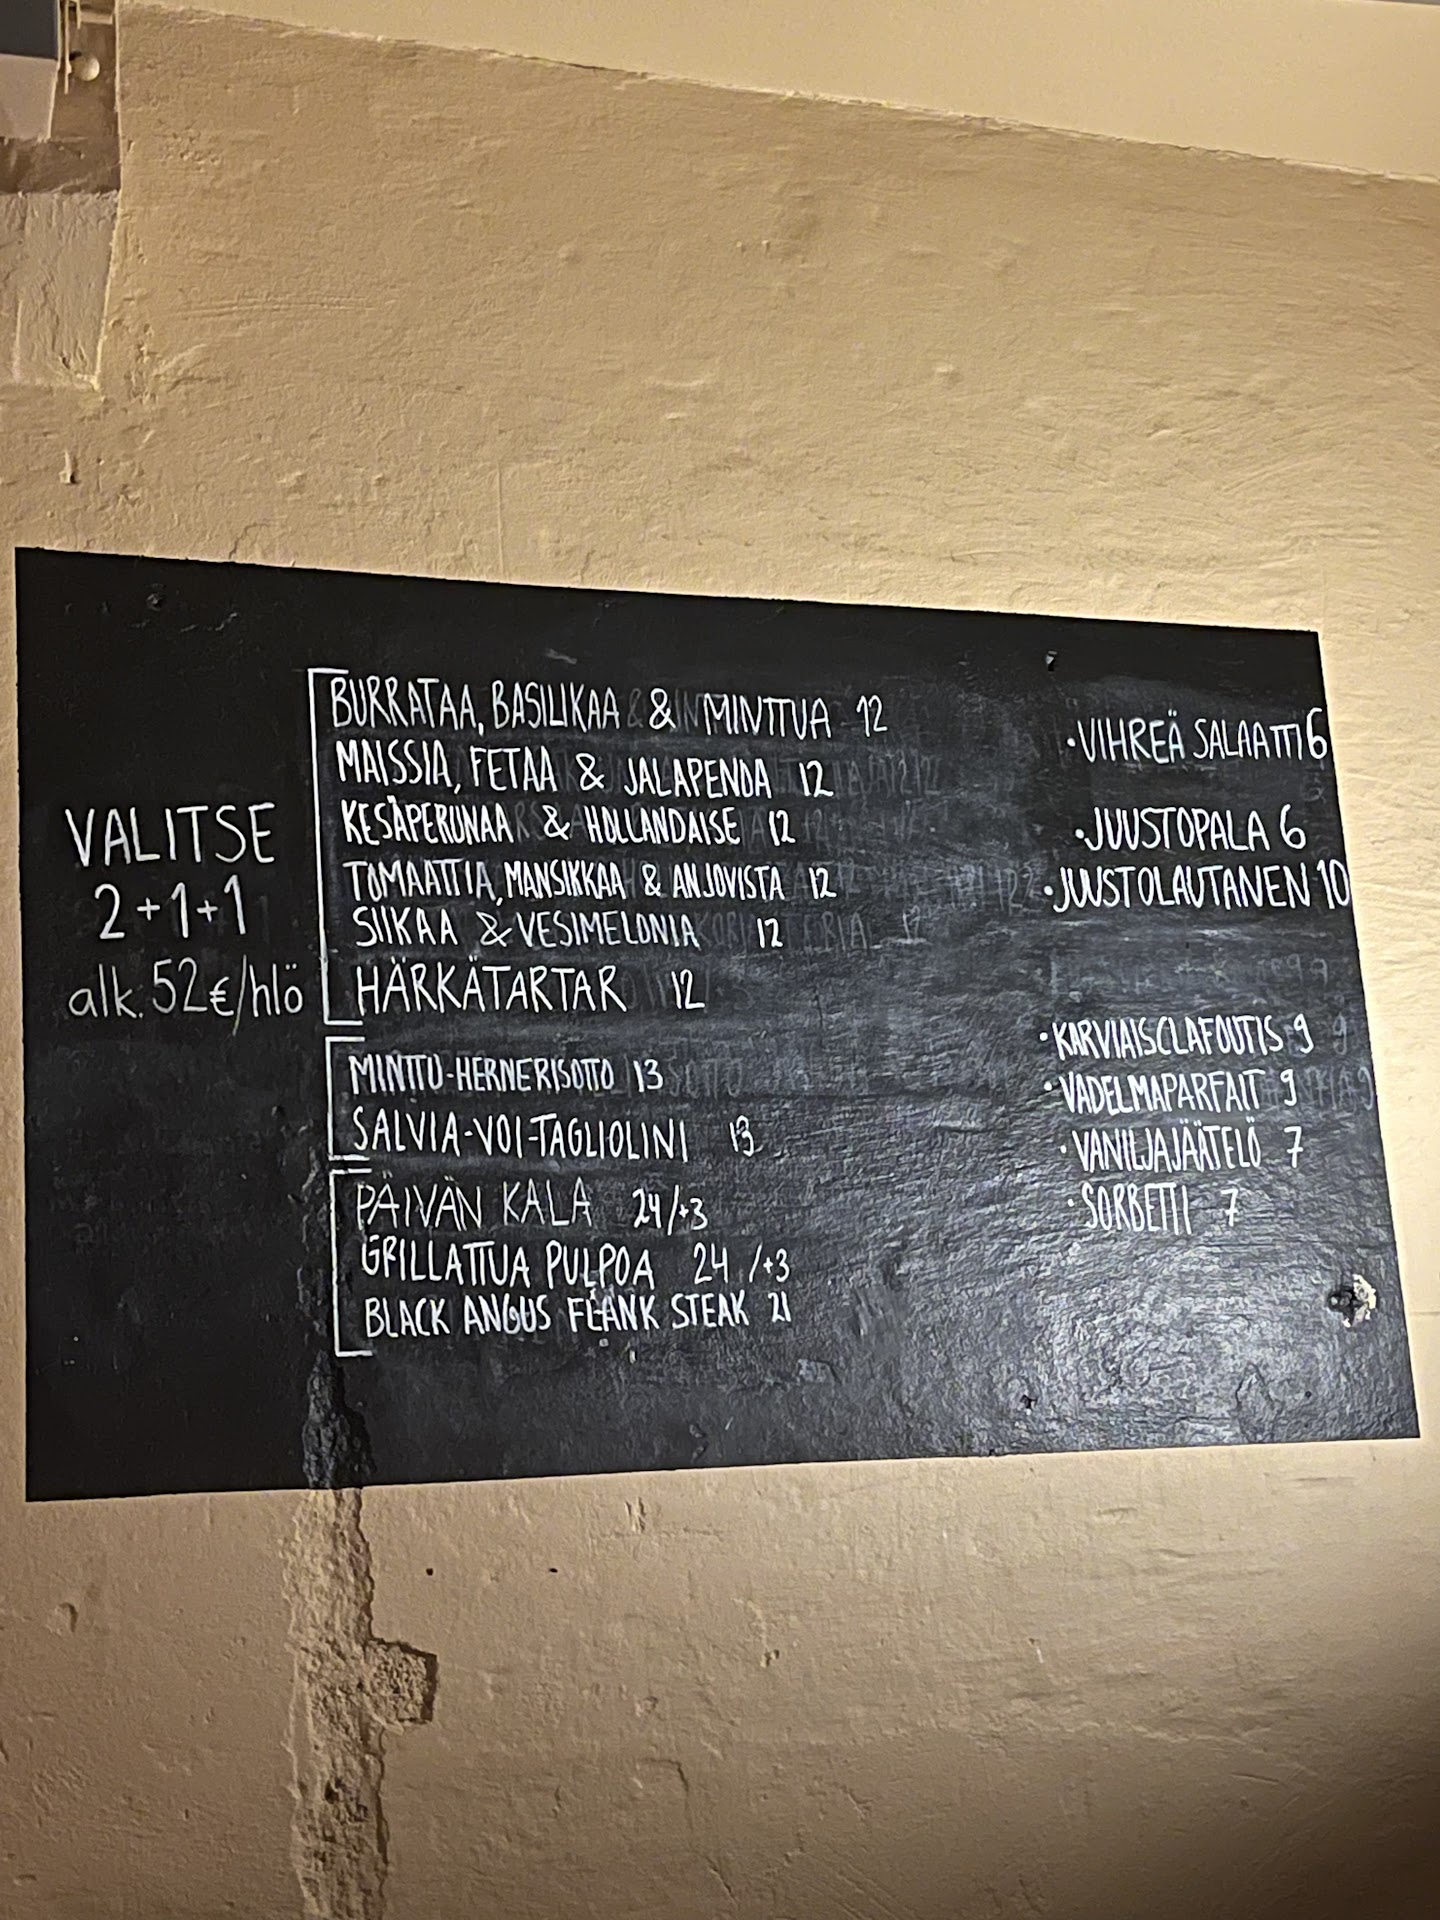 VALITSE
2+1+1
alk. 52€/hlö
BURRATAA, BASILIKAA & MINTTUA 12
MAISSIA, FETAA & JALAPENOA 12
KESÄPERUNAA & HOLLANDAISE 12
TOMAATTIA, MANSIKKAA & ANJOVISTA 12
SIIKAA & VESIMELONIA 12
HÄRKÄTARTAR 12
MINTTU-HERNERISOTTO 13
SALVIA-VOI-TAGLIOLINI 13
PÄIVÄN KALA 24/+3
GRILLATTUA PULPOA 24 /+3
BLACK ANGUS FLANK STEAK 21
·VIHREÄ SALAATTI 6
·JUUSTOPALA 6
·JUUSTOLAUTANEN 10
·KARVIAISCLAFOUTIS 9
·VADELMAPARFAIT 9
·VANILJAJÄÄTELÖ 7
·SORBETTI 7